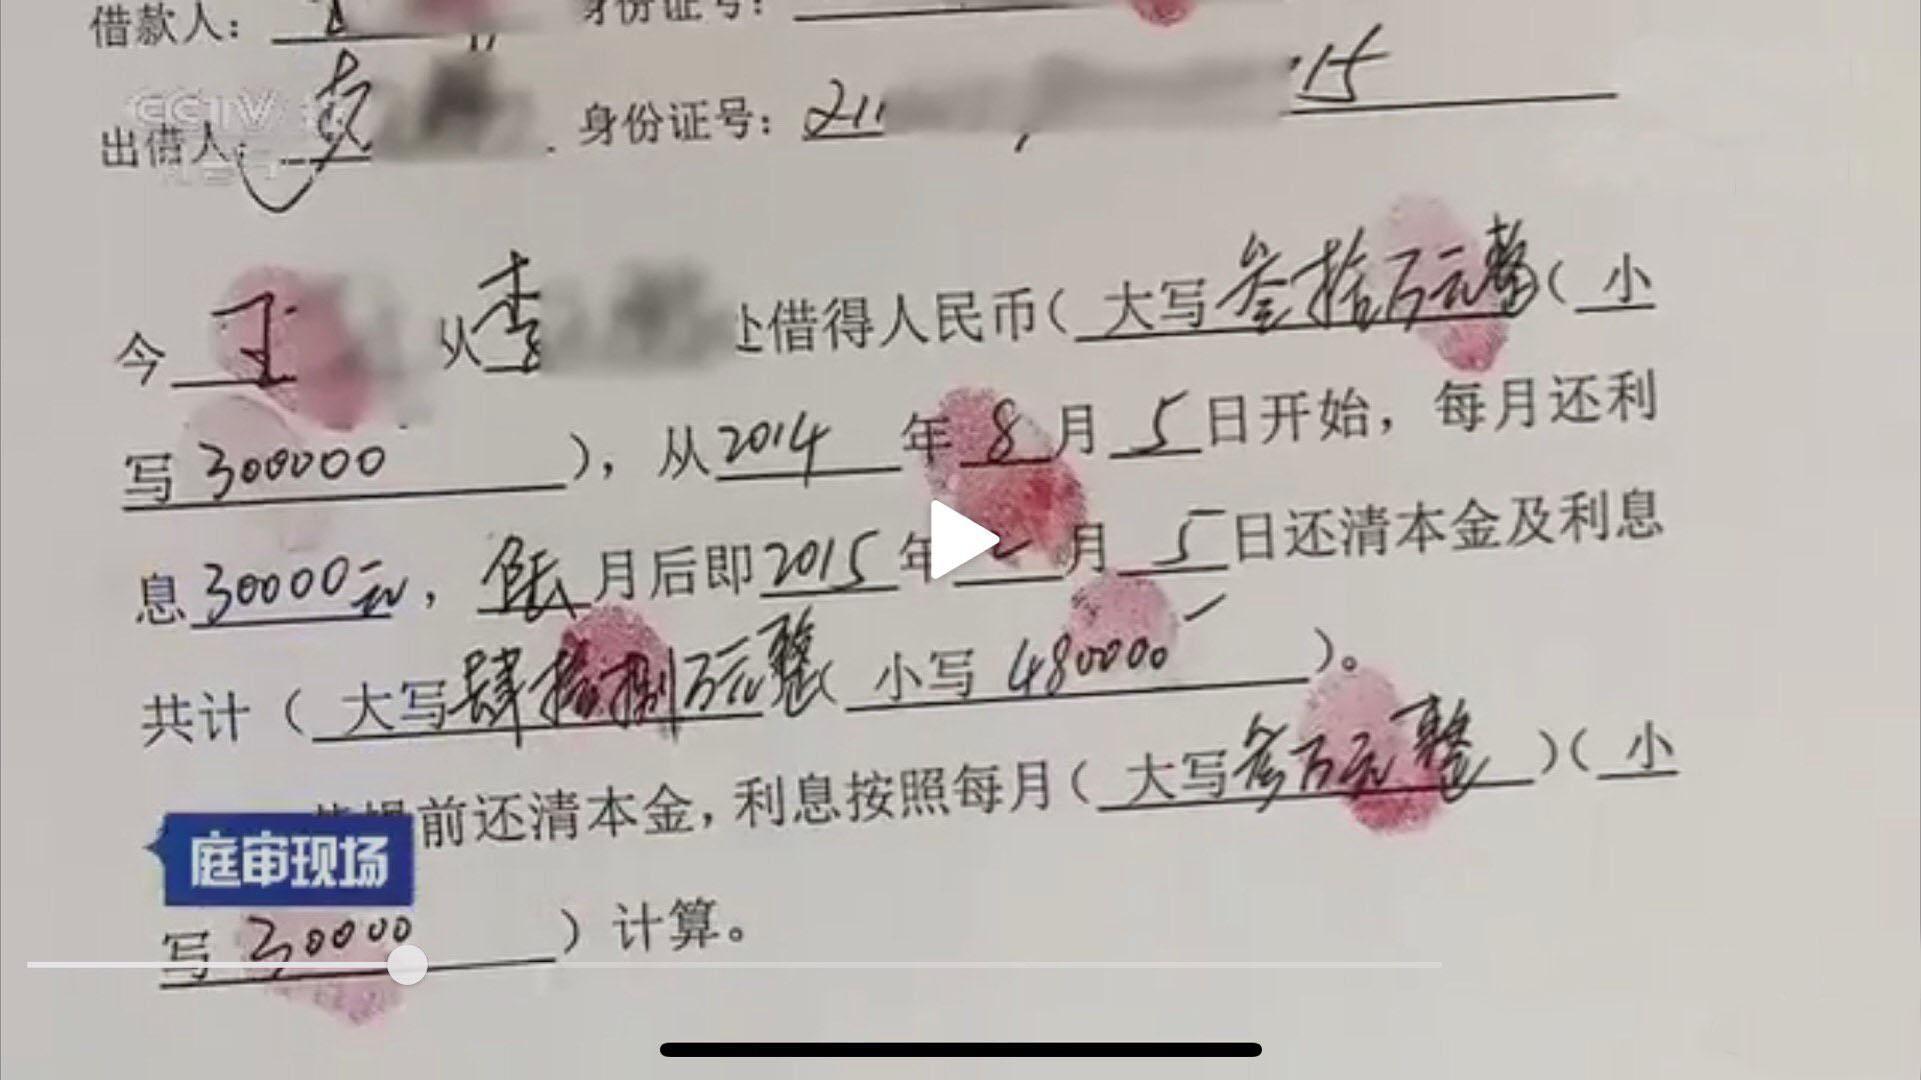 借款人： 身份证号：
CCTV
出借人： 李 身份证号：211 15
今 王 从 李 处借得人民币（ 大写叁拾万元整（ 小
写 300000 ），从2014 年 8 月 5 日开始，每月还利
息30000元，陆月后即2015年 月 5 日还清本金及利息
共计（ 大写肆拾捌万元整（ 小写 480000 ）。
前还清本金，利息按照每月（ 大写叁万元整 ）（ 小
庭审现场
写 30000 ）计算。